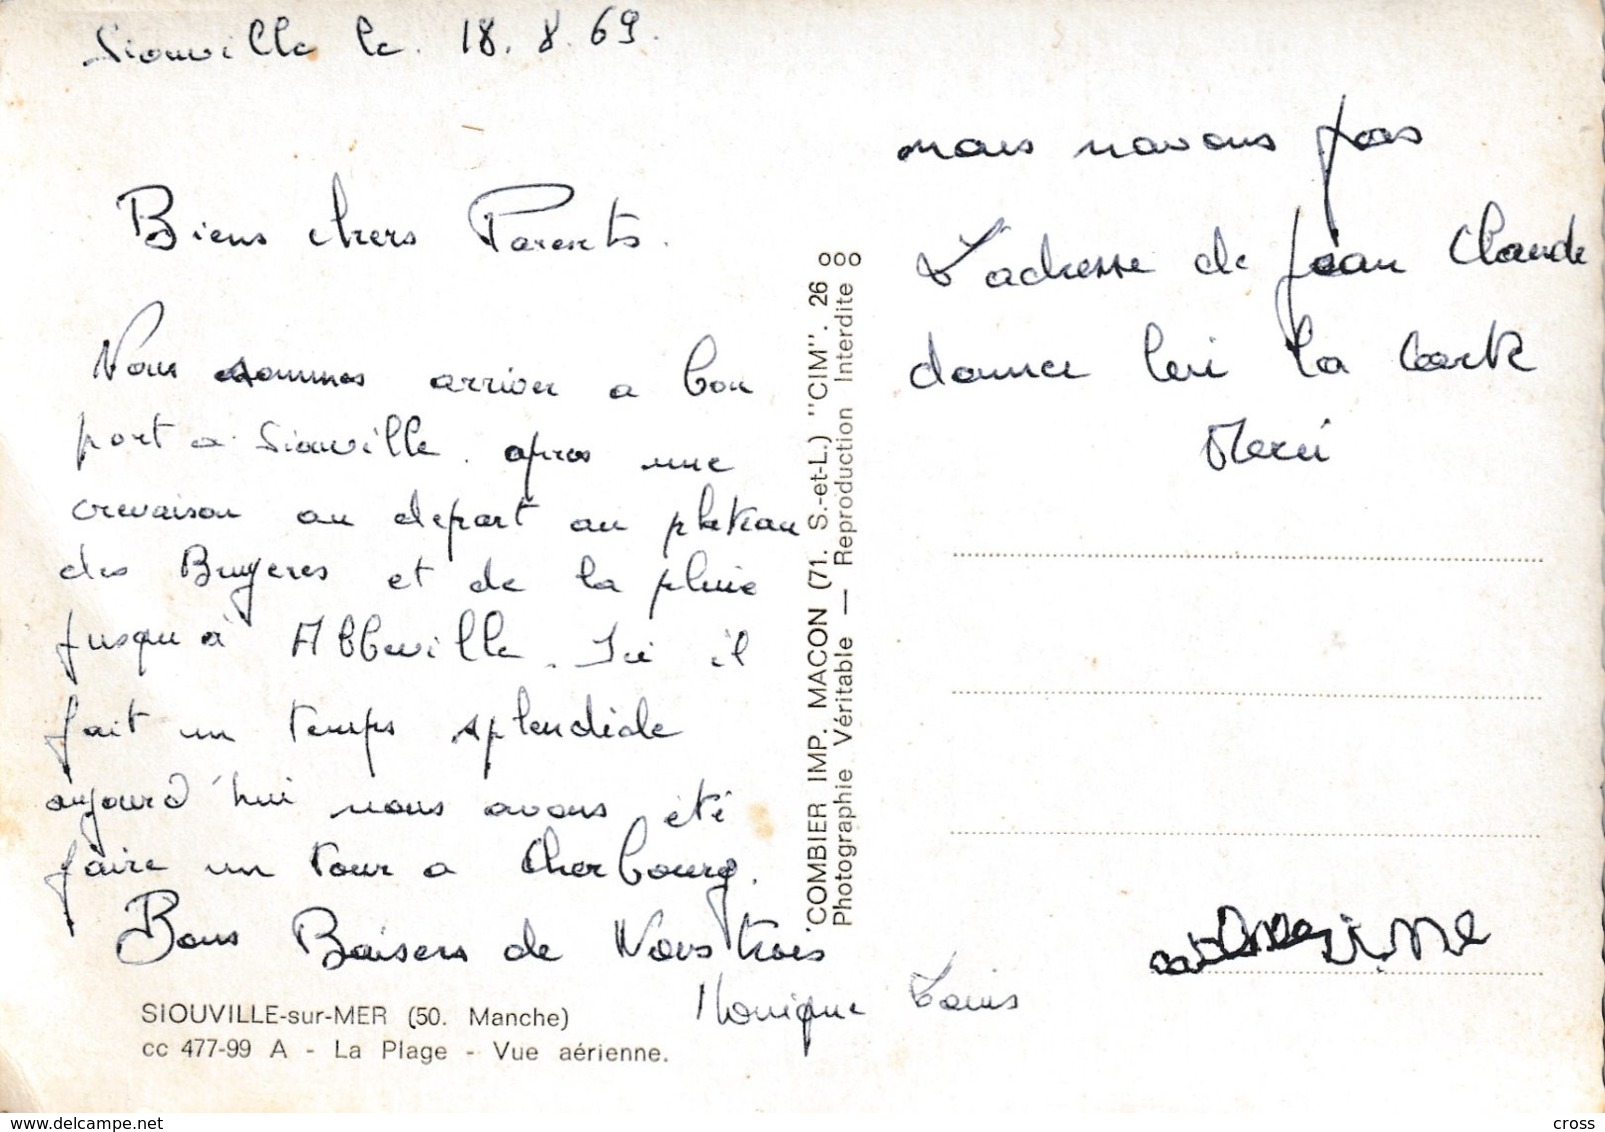 Siouville le. 18. 8. 69.
Biens chers Parents.
Nous sommes arriver a bon
port a Siouville. apres une
crevaison au depart au plateau
des Bruyeres et de la pluie
jusqu'à Abbeville. Ici il
fait un temps splendide
aujourd'hui nous avons été
faire un tour a Cherbourg.
Bons Baisers de Nous trois
Monique Louis
mais navons pas
L'adresse de Jean Claude
donner leri la carte
Merci
SIOUVILLE-sur-MER (50. Manche)
cc 477-99 A - La Plage - Vue aérienne.
COMBIER IMP. MACON (71. S.-et-L.) "CIM". 26
Photographie Véritable — Reproduction Interdite
www.delcampe.net
cross